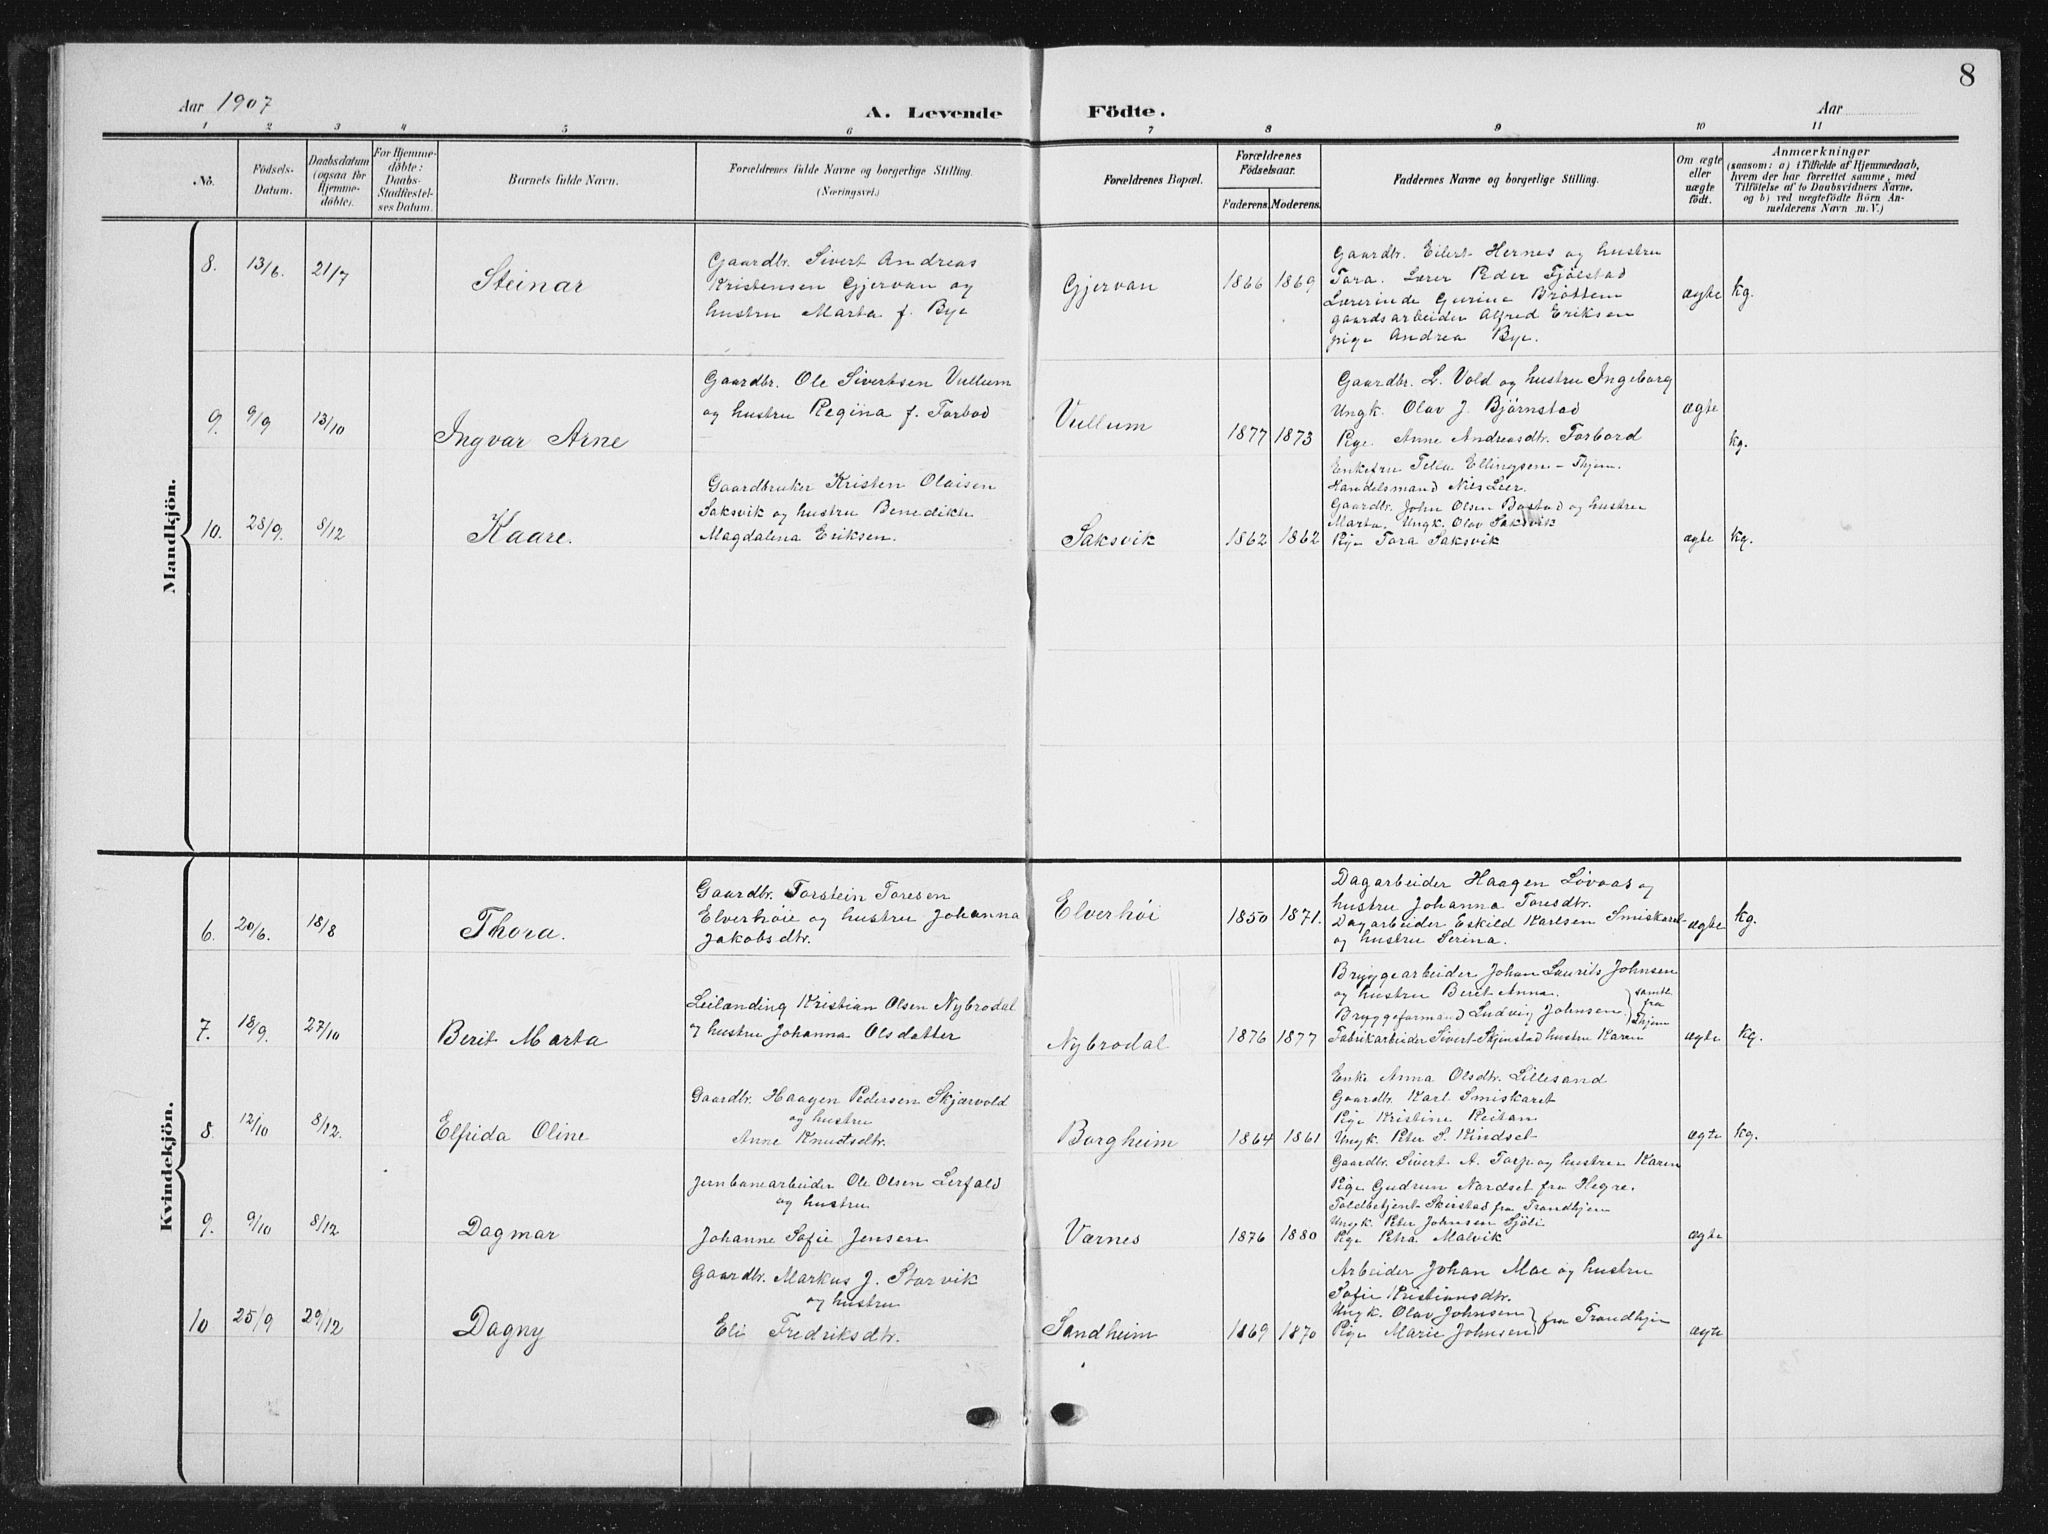 8
Aar 1907
A. Levende Födte.
Aar
1 2 3 4 5 6 7 8 9 10 11
No.
Födsels-Datum.
Daabsdatum (ogsaa for Hjemme-döbte).
For Hjemme-döbte: Daabs-Stadfæstel-ses Datum.
Barnets fulde Navn.
Forældrenes fulde Navne og borgerlige Stilling.
(Næringsvei.)
Forældrenes Bopæl.
Forældrenes Födselsaar.
Faderens. Moderens.
Faddernes Navne og borgerlige Stilling.
Om ægte eller uægte födt.
Anmærkninger
(saasom: a) i Tilfælde af Hjemmedaab,
hvem der har forrettet samme, med
Tilföielse af to Daabsvidners Navne.
og b) ved uægtefödte Börn An-
melderens Navn m. V.)
Mandkjön.
8. 13/6. 21/7 Steinar
Gaardbr. Sivert Andreas
Kristensen Gjervan og
hustru Marta f. Bye
Gjervan 1866 1869
Gaardbr. Eilert Hernes og hustru
Tora. Lærer Peder Fjölstad
Lærerinde Gurine Bröttem
gaardsarbeider Alfred Eriksen
pige Andrea Bye.
ægte kg.
9. 9/9 13/10 Ingvar Arne
Gaardbr. Ole Sivertsen Vullum
og hustru Regina f. Forbod
Vullum 1877 1873
Gaardbr. L. Vold og hustru Ingeborg
Ungk. Olav J. Bjørnstad
Pige Anne Andreasdtr. Forbord
ægte kg.
10. 28/9. 8/12 Kaare.
Gaardbruker Kristen Olaisen
Saksvik og hustru Benedikte
Magdalena Eriksen.
Saksvik 1862 1862
Enkefru Ellingsen - Thjem.
Handelsmand Nils Leer.
Gaardbr. John Olsen Bostad og hustru
Marta. Ungk. Olav Saksvik
Pige Tora Saksvik
ægte kg.
Kvindekjön.
6. 20/6. 18/8 Thora.
Gaardbr. Torstein Toresen
Elverhöie og hustru Johanna
Jakobsdtr.
Elverhöi 1850 1871.
Dagarbeider Haagen Lövaas og
hustru Johanna Toresdtr.
Dagarbeider Eskild Karlsen Smiskaret
og hustru Serina.
ægte kg.
7. 18/9. 27/10 Berit Marta
Leilænding Kristian Olsen Nybrodal
og hustru Johanna Olsdatter
Nybrodal 1876 1877
Bryggearbeider Johan Laurits Johnsen
og hustru Berit Anna.
Bryggeformand Ludvig Johnsen samtl. fra Thjem
Fabrikarbeider Sivert Skjenstad hustru Karen
ægte kg.
8. 12/10 8/12. Elfrida Oline
Gaardbr. Haagen Pedersen Skjærvold
og hustru
Anne Knutsdtr.
Borgheim 1864 1861
Enke Anna Olsdtr. Lillesand
Gaardbr. Karl Smiskaret
Pige Kristine Reitan
Ungk. Peter S. Kindset
ægte kg.
9. 9/10 8/12 Dagmar
Jernbanearbeider Ole Olsen Lerfald
og hustru
Johanne Sofie Jensen
Værnes 1876 1880
Gaardbr. Sivert A. Torp og hustru Karen
Pige Gudrun Nordset fra Hegre.
Toldbetjent Skirstad fra Trondhjem
Ungk. Peter Johnsen Sjöli
Pige Petra Malvik
ægte
10 25/9 29/12 Dagny
Gaardbr. Markus J. Storvik
og hustru
Eli Fredriksdtr.
Sandheim 1869 1870
Arbeider Johan Moe og hustru
Sofie Kristiansdtr.
Ungk. Olav Johnsen
Pige Marie Johnsen fra Trondhjem
ægte